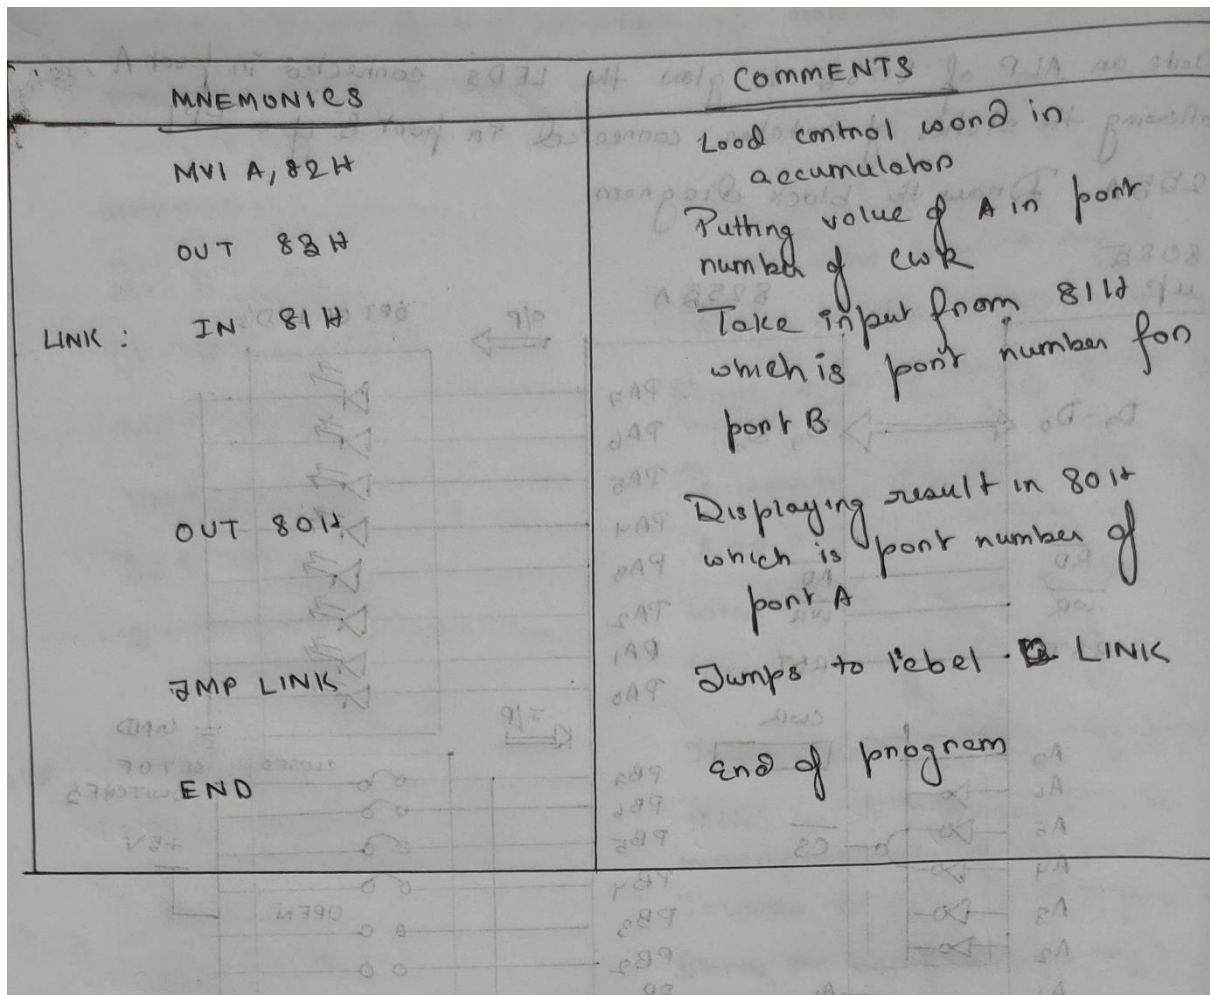 MNEMONICS
COMMENTS
MVI A, 82H
Load control word in
accumulator
OUT 83H
Putting value of A in port
number of CWR
LINK : IN 81H
Take input from 81H
which is port number for
port B
OUT 80H
Displaying result in 80H
which is port number of
port A
JMP LINK
Jumps to lebel LINK
END
End of program